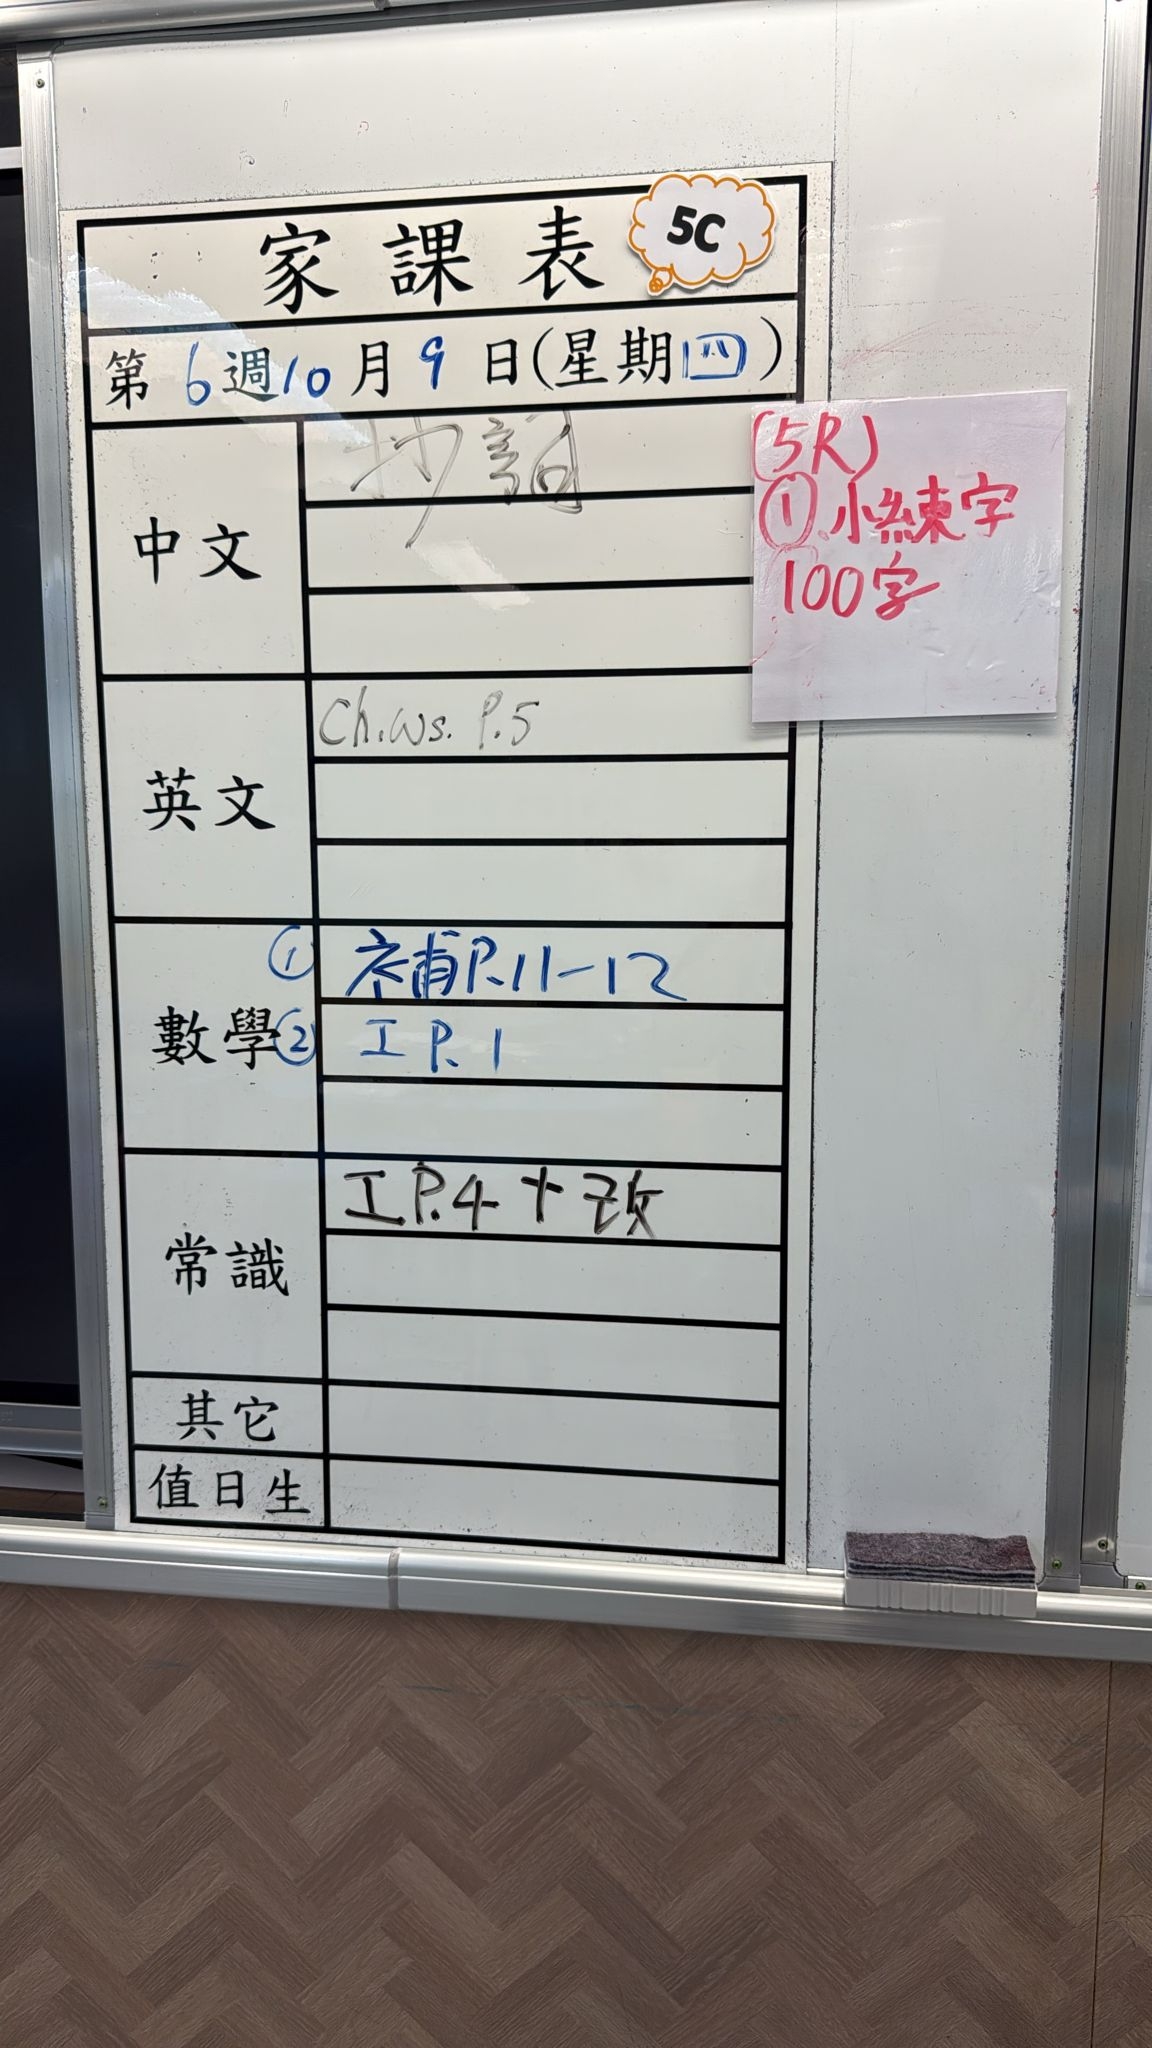 家課表 5C
第6週10月9日(星期四)
中文
抄詞
(5R)
①小練字
100字
英文
Ch.ws. P.5
數學
① 補P.11-12
② 工 P.1
常識
工P.4 + 改
其它
值日生